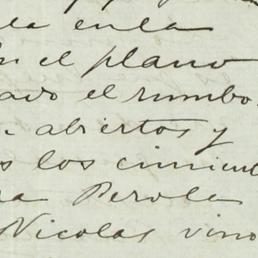 la en la
en el plano
ado el rumbo
abiertos y
s los cimient
ra Perola
Nicolas vino